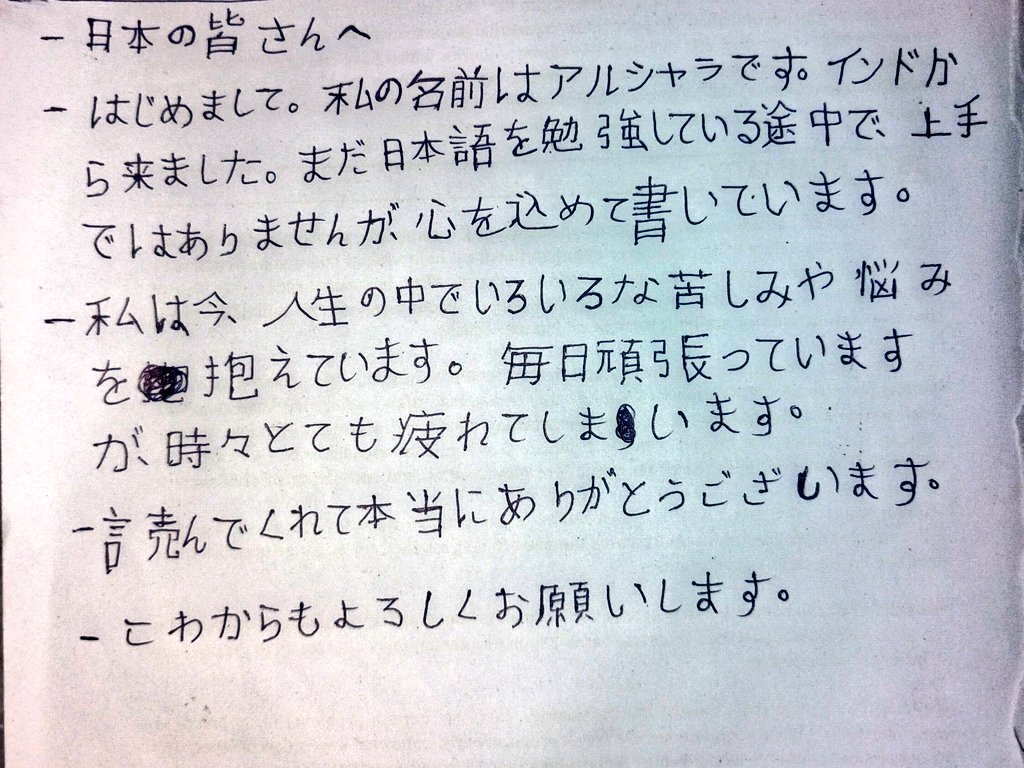 - 日本の皆さんへ
- はじめまして。私の名前はアルシャラです。インドか
ら来ました。まだ日本語を勉強している途中で、上手
ではありませんが、心を込めて書いています。
- 私は今、人生の中でいろいろな苦しみや悩み
を抱えています。毎日頑張っています
が、時々とても疲れてしまいます。
- 読んでくれて本当にありがとうございます。
- こわからもよろしくお願いします。